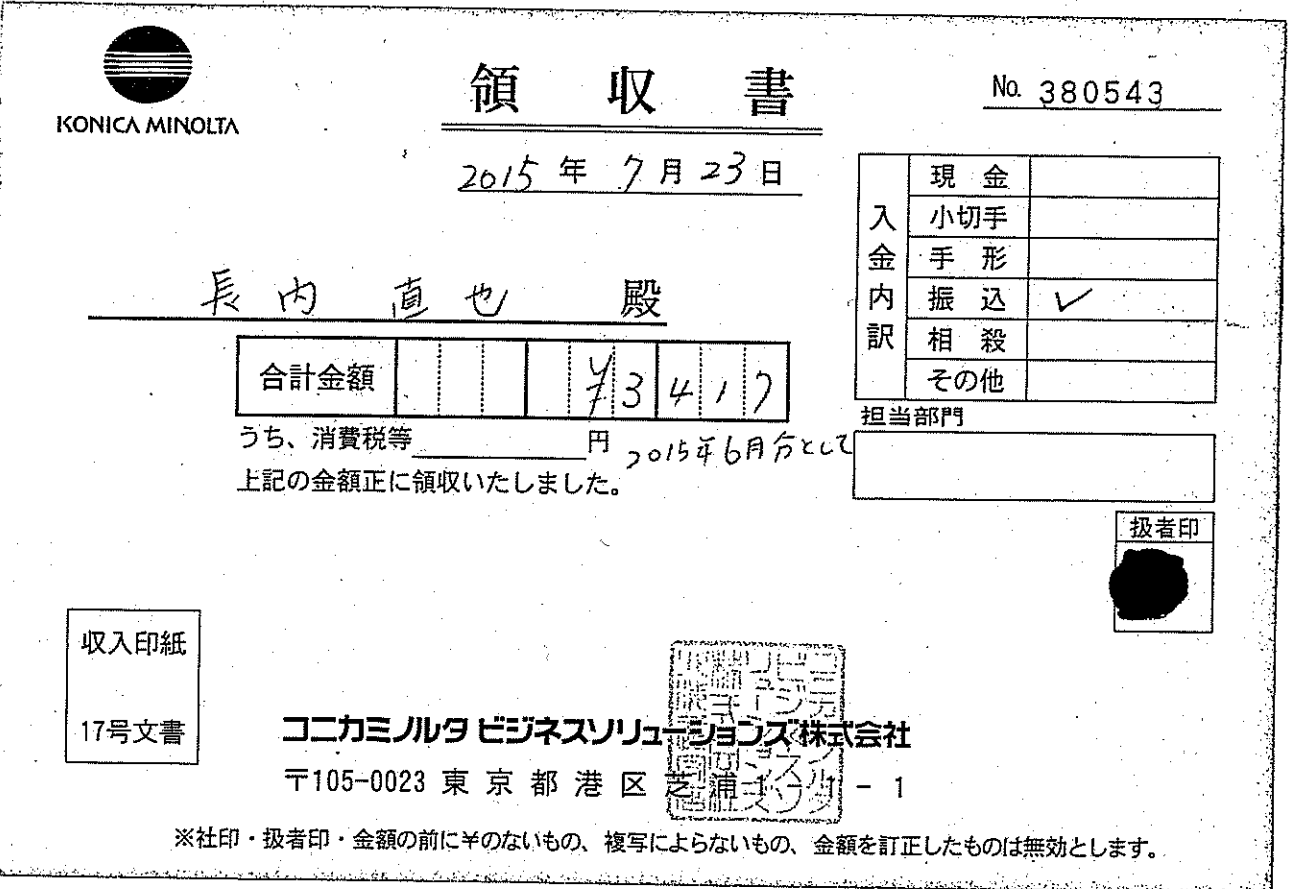 KONICA MINOLTA
領収書
No. 380543
2015年7月23日
長内 直也 殿
入金内訳
現金
小切手
手形
振込 ✓
相殺
その他
合計金額 ¥3417
うち、消費税等 円
2015年6月分として
上記の金額正に領収いたしました。
担当部門
扱者印
収入印紙
17号文書
コニカミノルタ ビジネスソリューションズ株式会社
〒105-0023 東京都港区芝浦1-1-1
※社印・扱者印・金額の前に¥のないもの、複写によらないもの、金額を訂正したものは無効とします。